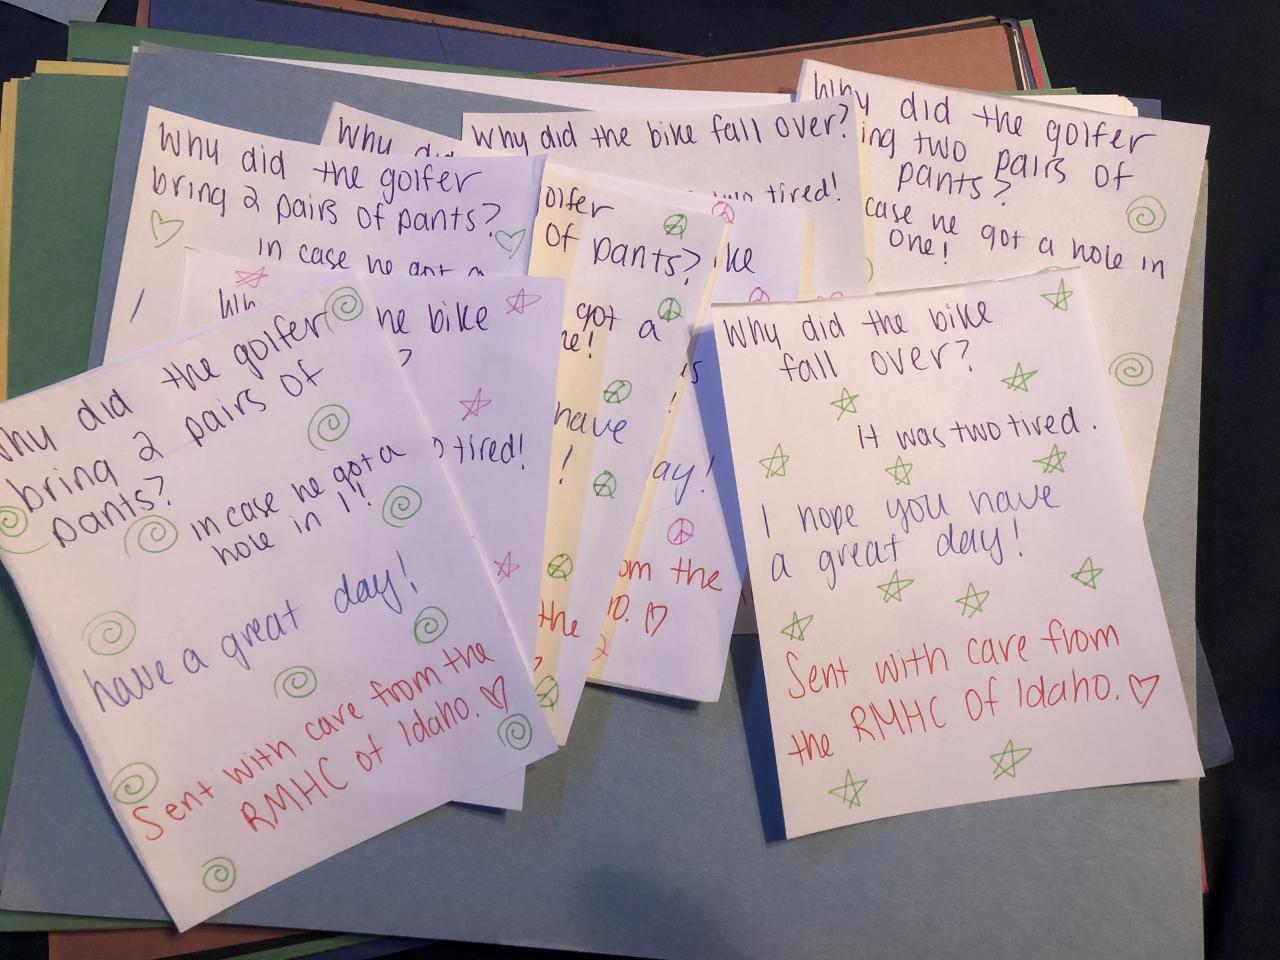 Why did the golfer
bring 2 pairs of pants?
in case he got a
Why did
Why did the bike fall over?
two tired!
Why did the golfer
ing two pairs of
pants?
case he got a hole in
one!
golfer
of pants?
got a
have
!
the
ke
ay!
om the
o. ♡
the bike
?
o tired!
Why did the golfer
bring 2 pairs of
pants?
in case he got a
hole in 1!
have a great day!
Sent with care from the
RMHC of Idaho. ♡
Why did the bike
fall over?
it was two tired.
I hope you have
a great day!
Sent with care from
the RMHC of Idaho. ♡